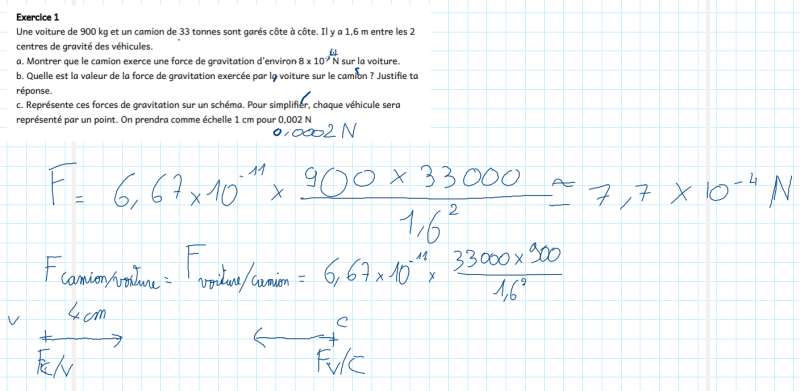 Exercice 1
Une voiture de 900 kg et un camion de 33 tonnes sont garés côte à côte. Il y a 1,6 m entre les 2
centres de gravité des véhicules.
a. Montrer que le camion exerce une force de gravitation d'environ 8 x 10⁻⁴ N sur la voiture.
b. Quelle est la valeur de la force de gravitation exercée par la voiture sur le camion ? Justifie ta
réponse.
c. Représente ces forces de gravitation sur un schéma. Pour simplifier, chaque véhicule sera
représenté par un point. On prendra comme échelle 1 cm pour 0,002 N
0,0002 N
F = 6,67 x 10⁻¹¹ x (900 x 33000)/1,6² ≈ 7,7 x 10⁻⁴ N
F camion/voiture = F voiture/camion = 6,67 x 10⁻¹¹ x (33000 x 900)/1,6²
4 cm
V C
F C/V F V/C